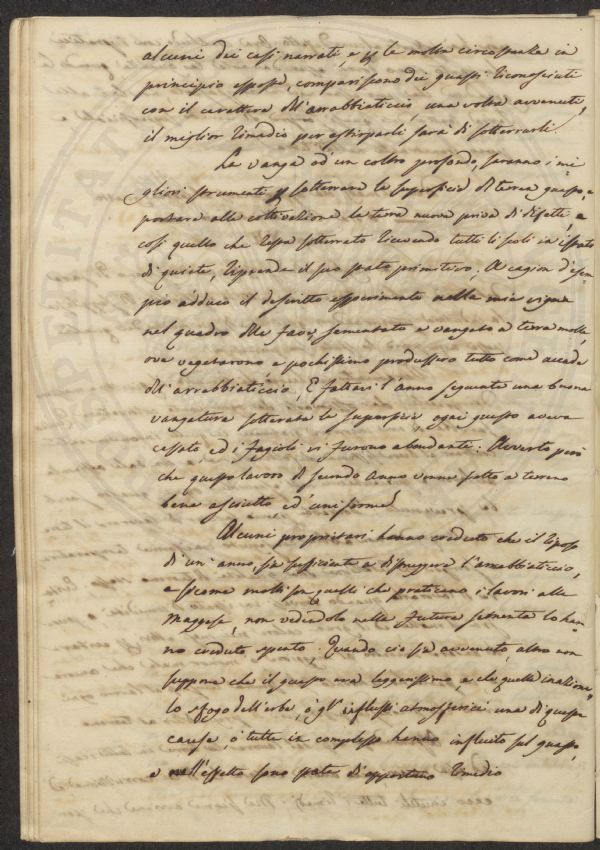 alcuni dei casi narrati, e p le molte circostanze in
principio esposte, compariscono dei guasti riconosciuti
con il carattere dell'arrabbiaticcio, una volta avvenuti,
il miglior rimedio per estirparli sarà di sotterrarli.
La vanga od'un coltro profondo, saranno i mi=
gliori strumenti p sotterrare la superficie di terra guasta, e
portare alla coltivazione la terra nuova priva di difetti, e
così quella che resta sotterrata ricevendo tutti li scoli in istato
di quiete, riprende il suo stato primitivo. A cagion d'esem
pio adduco il descritto esperimento nella mia vigna
nel quadro delle fave, sementato e vangato a terra molle,
ove vegetarono, e pochissimo produssero tutto come accade
dell'arrabbiaticcio, E fattavi l'anno seguente una buona
vangatura sotterata la superficie, ogni guasto aveva
cessato, ed i fagioli vi furono abondanti. Avverto però
che questo lavoro di secondo Anno venne fatto a terreno
bene asciutto, ed'uniforme.
Alcuni proprietari hanno creduto che il riposo
di un'anno, sia sufficiente a distruggere l'arrabbiaticcio,
e siccome molti son quelli che praticano i lavori alle
Maggese, non vedendolo nella futura sementa lo han=
no creduto spento. Quando ciò sia avvenuto, altro non
suppone che il guasto era leggerissimo, e che quella inazione,
lo sfogo dell'erbe, o gl'influssi atmosferici una di queste
cause, o tutte in complesso hanno influito sul guasto,
e nell'effetto sono state di opportuno rimedio